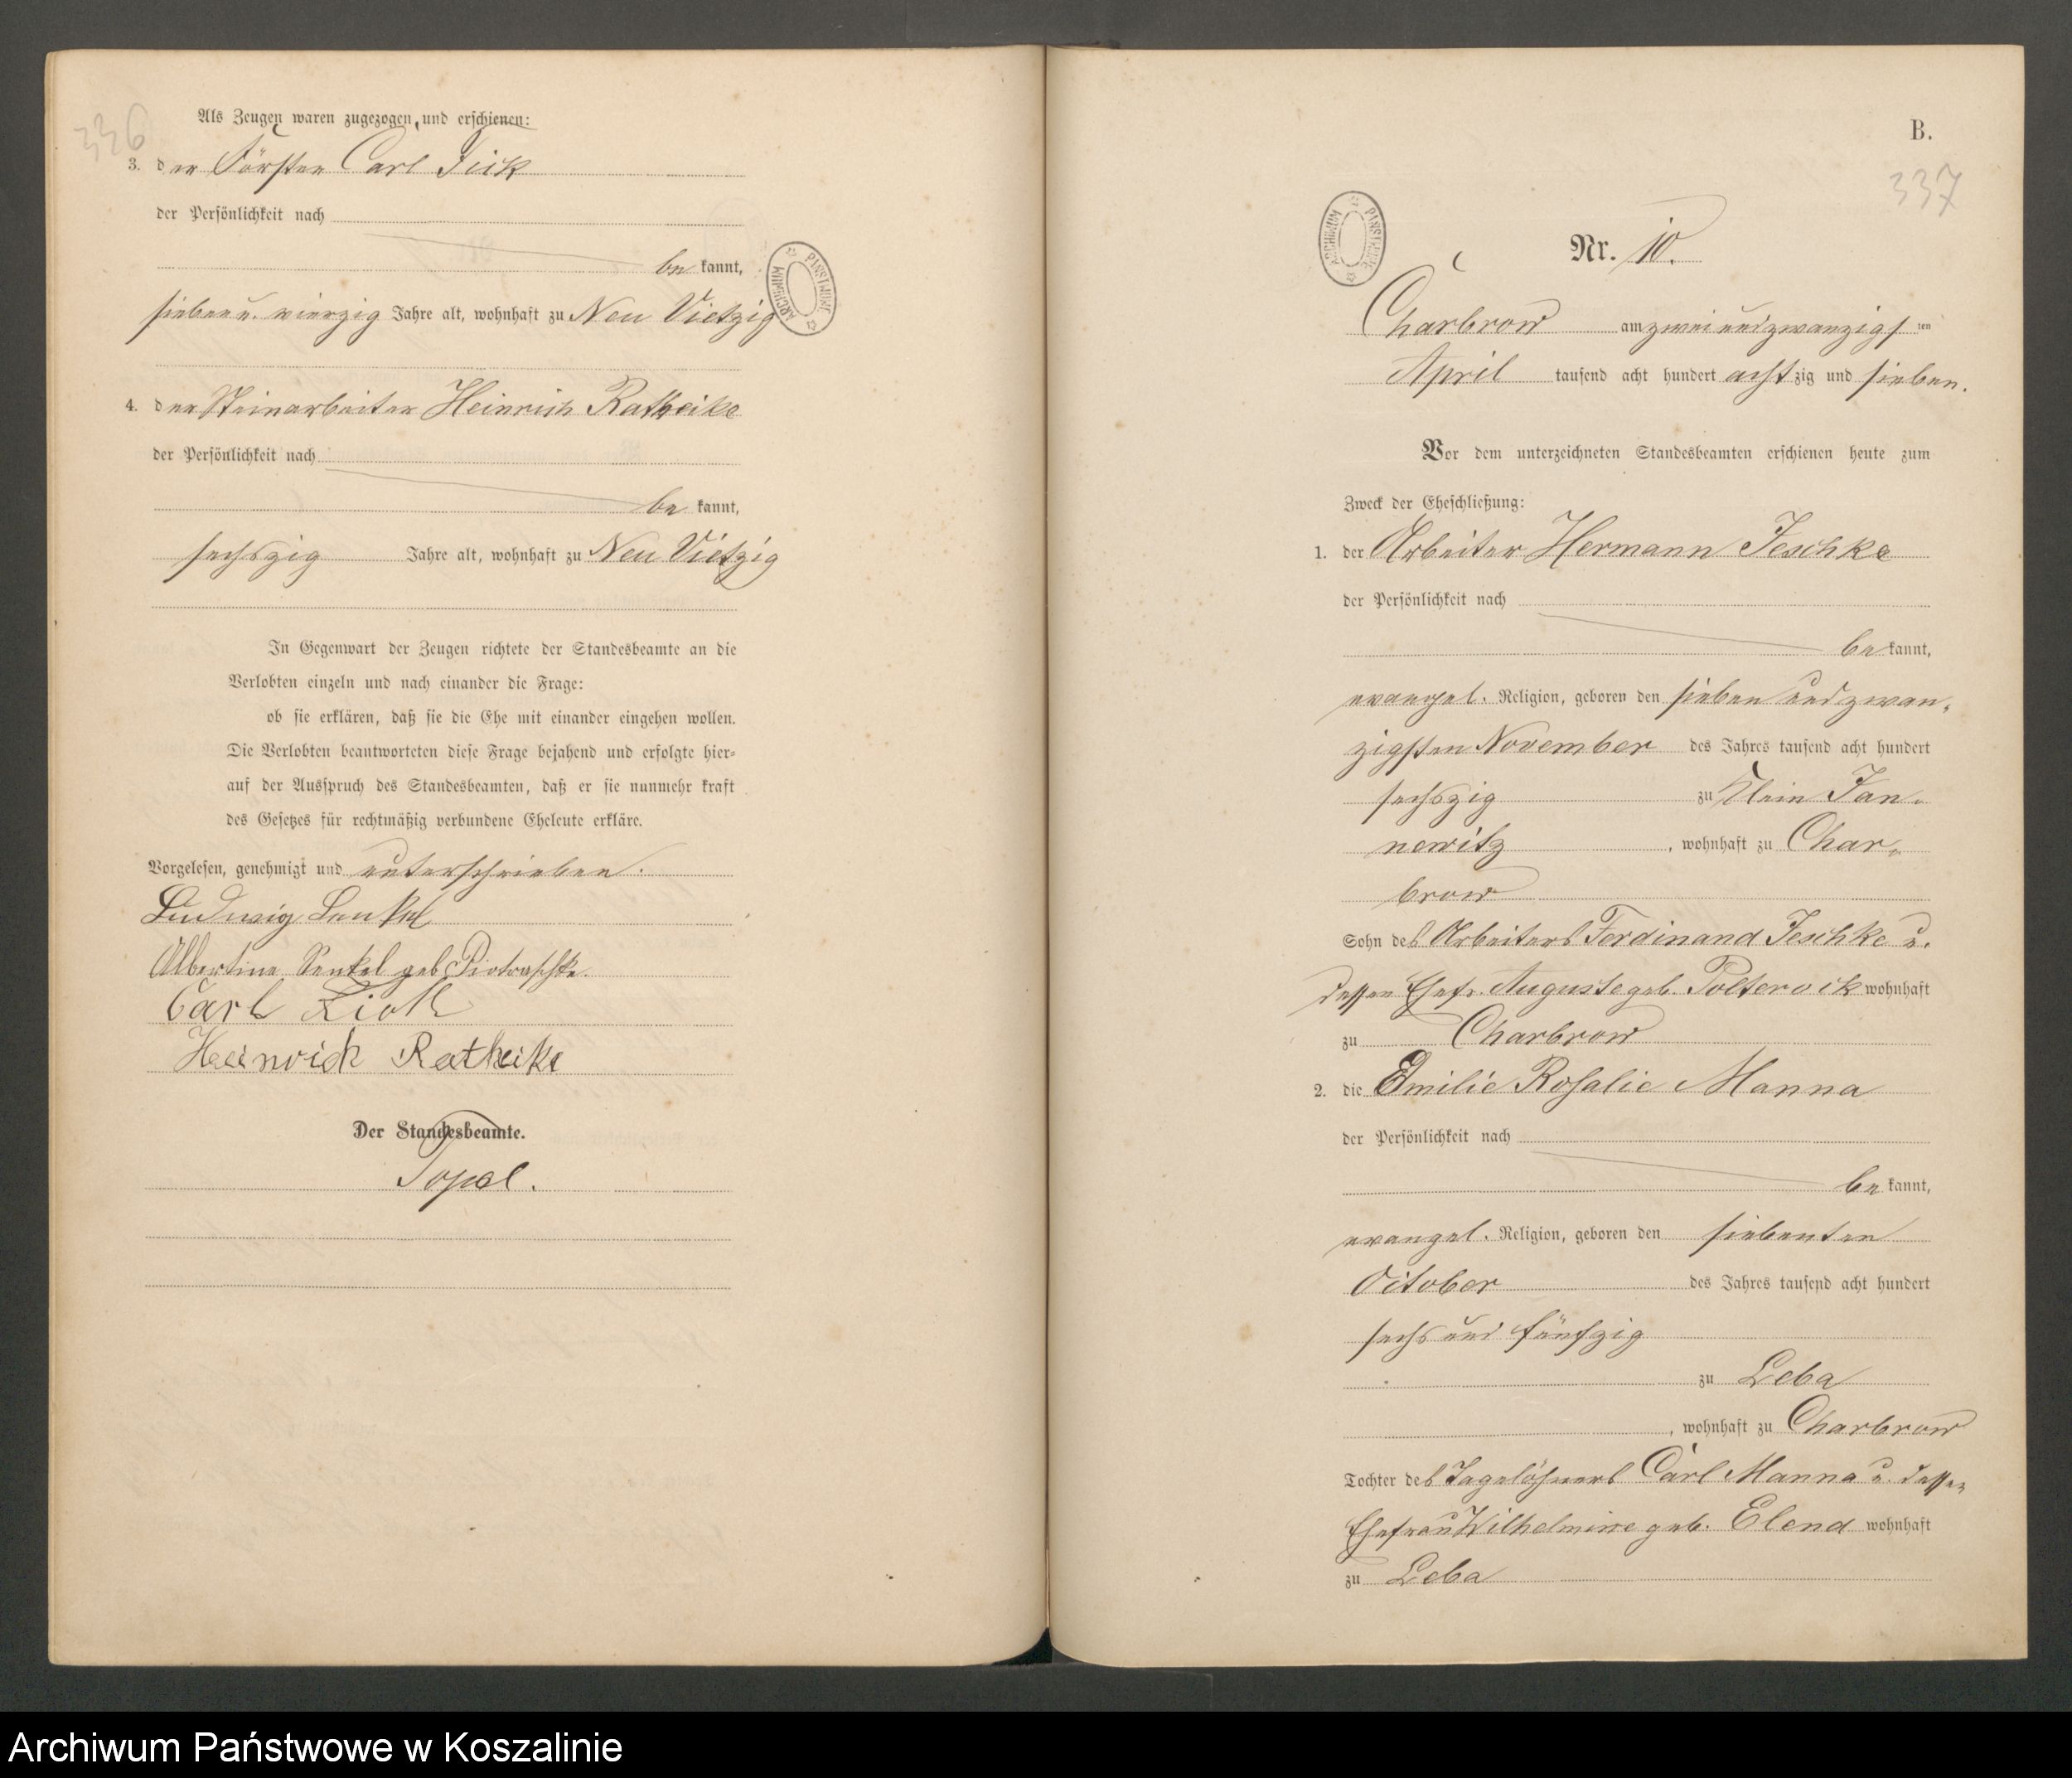 336
Als Zeugen waren zugezogen und erschienen:
3. der Förster Carl
der Persönlichkeit nach
be kannt,
sieben u. vierzig Jahre alt, wohnhaft zu Neu Vietzig
4. der Steinarbeiter Heinrich Ratheike
der Persönlichkeit nach
be kannt,
sechszig Jahre alt, wohnhaft zu Neu Vietzig
In Gegenwart der Zeugen richtete der Standesbeamte an die
Verlobten einzeln und nach einander die Frage:
ob sie erklären, daß sie die Ehe mit einander eingehen wollen.
Die Verlobten beantworteten diese Frage bejahend und erfolgte hier-
auf der Ausspruch des Standesbeamten, daß er sie nunmehr kraft
des Gesetzes für rechtmäßig verbundene Eheleute erkläre.
Vorgelesen, genehmigt und unterschrieben.
Ludwig
Albertine geb. Piotraschke.
Carl
Heinrich Ratheike
Der Standesbeamte.
ARCHIWUM PAŃSTWOWE
B.
337
ARCHIWUM PAŃSTWOWE
Nr. 10.
Charbrow am zwei und zwanzigsten
April tausend acht hundert achtzig und sieben.
Vor dem unterzeichneten Standesbeamten erschienen heute zum
Zweck der Eheschließung:
1. der Arbeiter Hermann Jeschke
der Persönlichkeit nach
be kannt,
evangel. Religion, geboren den sieben und zwan-
zigsten November des Jahres tausend acht hundert
sechszig zu Klein Jan-
newitz, wohnhaft zu Char-
brow
Sohn des Arbeiters Ferdinand Jeschke u.
dessen Ehefr. Auguste geb. Polterock wohnhaft
zu Charbrow
2. die Emilie Rosalie Manna
der Persönlichkeit nach
be kannt,
evangel. Religion, geboren den siebenten
October des Jahres tausend acht hundert
sechs und fünfzig
zu Leba
, wohnhaft zu Charbrow
Tochter des Tagelöhners Carl Manna u. dessen
Ehefrau Wilhelmine geb. Elend wohnhaft
zu Leba
Archiwum Państwowe w Koszalinie